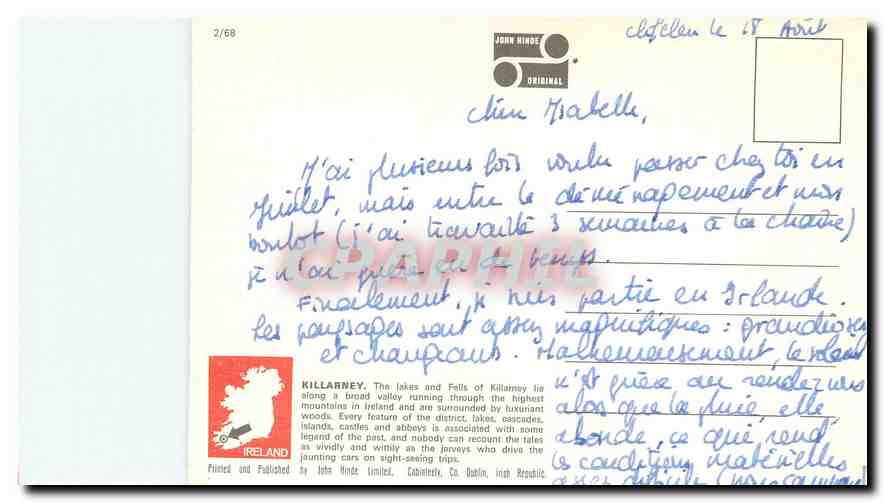 2/68
JOHN HINDE
ORIGINAL
le 18 Août
Chère Isabelle,
J'ai plusieurs fois voulu passer chez toi en
Juillet, mais entre le déménagement et mon
boulot (j'ai travaillé 3 semaines à la chaîne)
je n'ai guère eu de temps.
CPAPHIL
Finalement, je suis partie en Irlande.
Les paysages sont assez magnifiques : grandioses
et changeants. Malheureusement, le soleil
n'est guère au rendez vous
alors que la pluie, elle
abonde, ce qui rend
les conditions matérielles
assez
KILLARNEY. The lakes and Fells of Killarney lie
along a broad valley running through the highest
mountains in Ireland and are surrounded by luxuriant
woods. Every feature of the district, lakes, cascades,
islands, castles and abbeys is associated with some
legend of the past, and nobody can recount the tales
as vividly and wittily as the jarveys who drive the
jaunting cars on sight-seeing trips.
IRELAND
Printed and Published by John Hinde Limited, Cabinteely, Co. Dublin, Irish Republic.